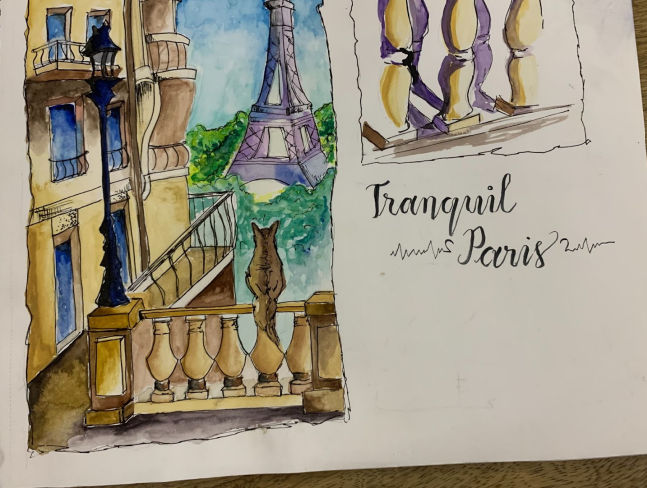 Tranquil
Paris